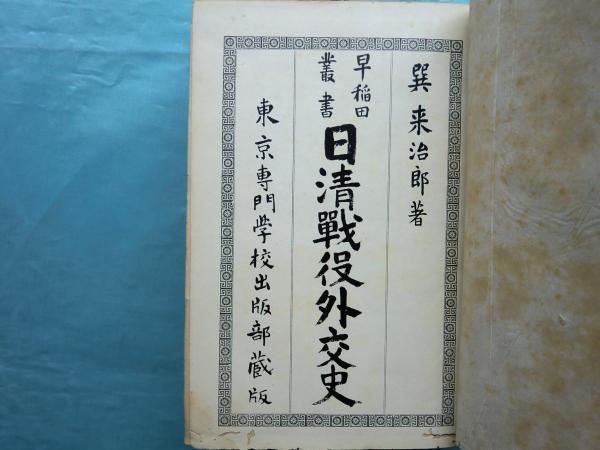 巽来治郎著
早稲田
叢書
日清戰役外交史
東京專門学校出版部蔵版